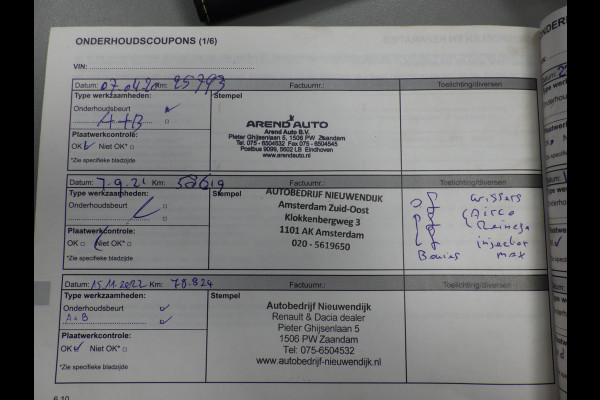 ONDERHOUDSCOUPONS (1/6)
VIN:
Datum: 07 04 20 Km: 25793
Factuurnr.:
Toelichting/diversen
Type werkzaamheden:
Onderhoudsbeurt
A+B
Plaatwerkcontrole:
OK Niet OK*
*Zie specifieke bladzijde
Stempel
AREND AUTO
Arend Auto B.V.
Pieter Ghijsenlaan 5, 1506 PW Zaandam
Tel. 075 - 6504532 Fax 075 - 6504545
Postbus 9099, 5602 LB Eindhoven
www.arendauto.nl
Datum: 7.9.21 Km:
Factuurnr.:
Toelichting/diversen
Type werkzaamheden:
Onderhoudsbeurt
Plaatwerkcontrole:
OK Niet OK*
*Zie specifieke bladzijde
Stempel
AUTOBEDRIJF NIEUWENDIJK
Amsterdam Zuid-Oost
Klokkenbergweg 3
1101 AK Amsterdam
020 - 5619650
wissers
Airco
injector
max
Datum: 15.11.2022 Km: 78.824
Factuurnr.:
Toelichting/diversen
Type werkzaamheden:
Onderhoudsbeurt
A+B
Plaatwerkcontrole:
OK Niet OK*
*Zie specifieke bladzijde
Stempel
Autobedrijf Nieuwendijk
Renault & Dacia dealer
Pieter Ghijsenlaan 5
1506 PW Zaandam
Tel: 075-6504532
www.autobedrijf-nieuwendijk.nl
6.10